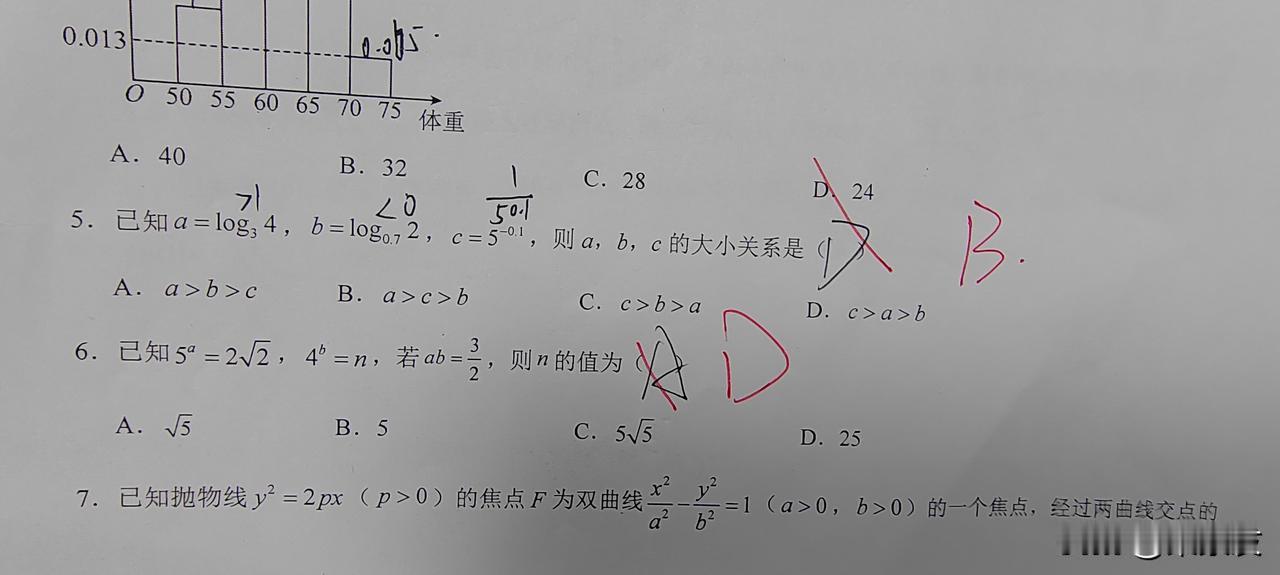 0.013
0.015.
O 50 55 60 65 70 75 体重
A. 40 B. 32 C. 28 D. 24
>1 <0 1/5^0.1
5. 已知 a=log₃4，b=log₀.₇2，c=5^-0.1，则 a，b，c 的大小关系是（D） B.
A. a>b>c B. a>c>b C. c>b>a D. c>a>b
6. 已知 5^a=2√2，4^b=n，若 ab=3/2，则 n 的值为（A） D
A. √5 B. 5 C. 5√5 D. 25
7. 已知抛物线 y²=2px（p>0）的焦点 F 为双曲线 x²/a²-y²/b²=1（a>0，b>0）的一个焦点，经过两曲线交点的